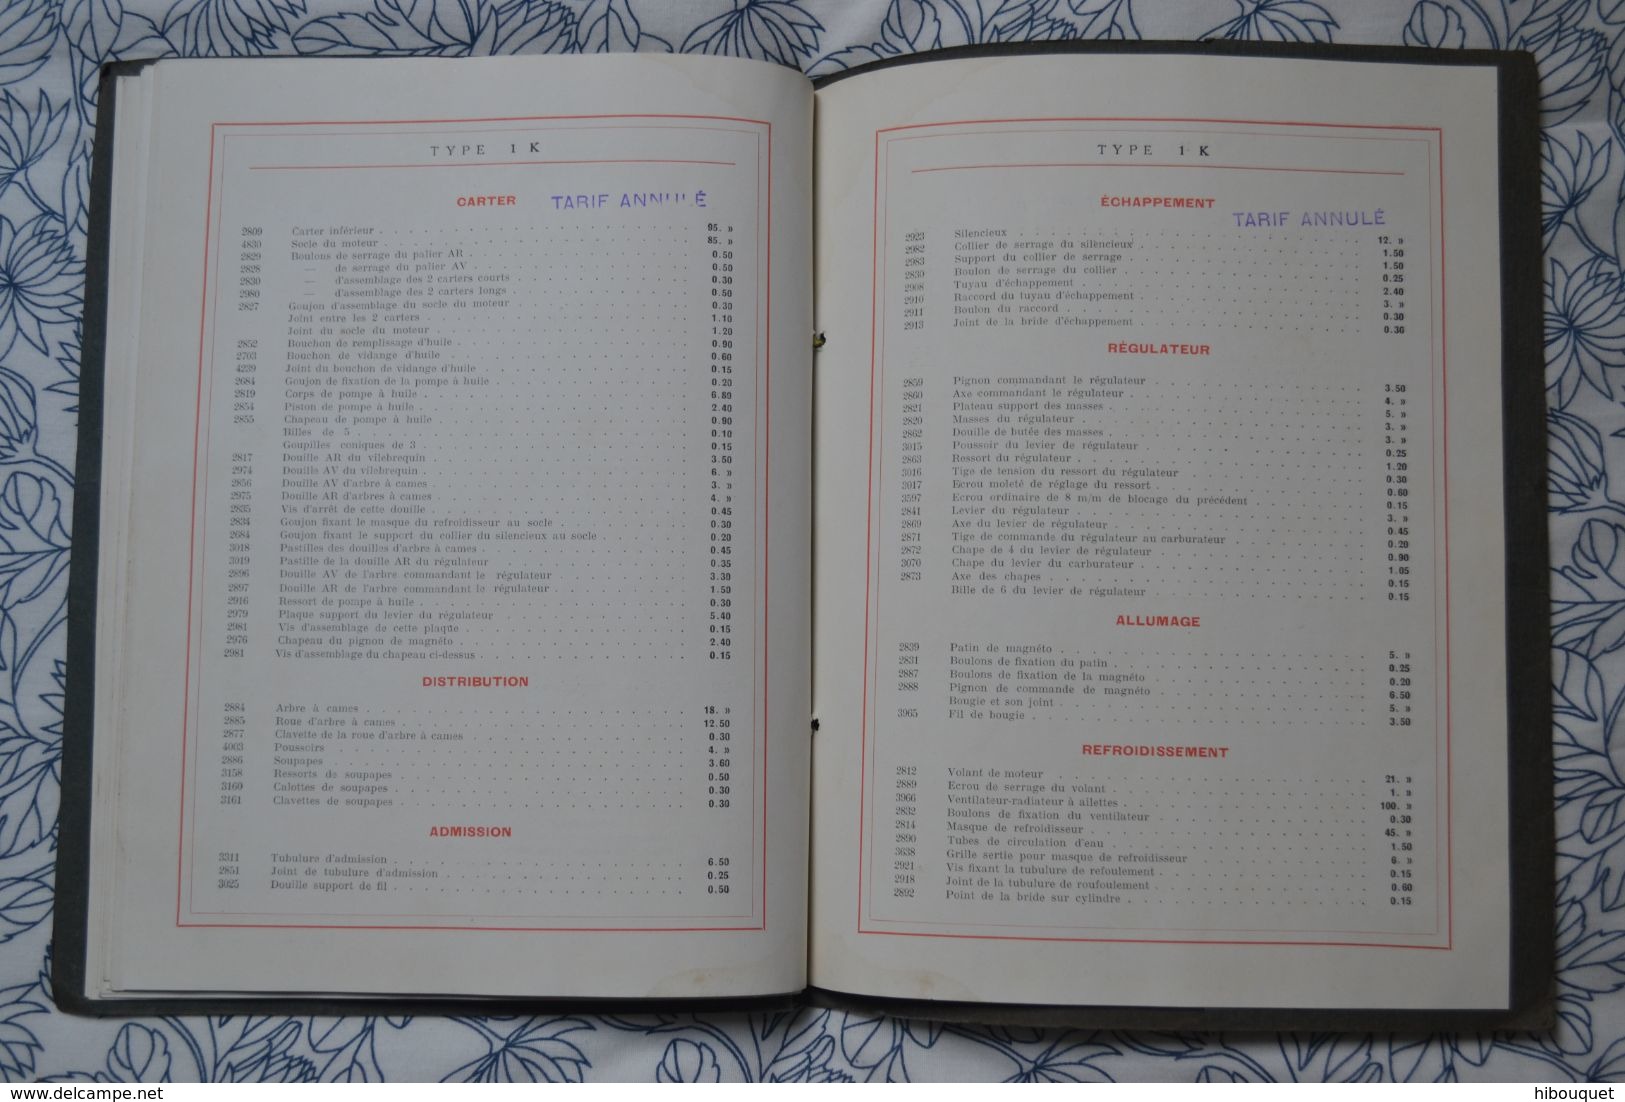 TYPE 1 K
CARTER TARIF ANNULÉ
2809 Carter inférieur 95. »
4830 Socle du moteur 85. »
2829 Boulons de serrage du palier AR 0.50
2828 — de serrage du palier AV 0.50
2830 — d'assemblage des 2 carters courts 0.30
2980 — d'assemblage des 2 carters longs 0.50
2827 Goujon d'assemblage du socle du moteur 0.30
Joint entre les 2 carters 1.10
Joint du socle du moteur 1.20
2852 Bouchon de remplissage d'huile 0.90
2703 Bouchon de vidange d'huile 0.60
4239 Joint du bouchon de vidange d'huile 0.15
2684 Goujon de fixation de la pompe à huile 0.20
2819 Corps de pompe à huile 6.80
2854 Piston de pompe à huile 2.40
2855 Chapeau de pompe à huile 0.90
Billes de 5 0.10
Goupilles coniques de 3 0.15
2817 Douille AR du vilebrequin 3.50
2974 Douille AV du vilebrequin 6. »
2856 Douille AV d'arbre à cames 3. »
2975 Douille AR d'arbres à cames 4. »
2835 Vis d'arrêt de cette douille 0.45
2834 Goujon fixant le masque du refroidisseur au socle 0.30
2684 Goujon fixant le support du collier du silencieux au socle 0.20
3018 Pastilles des douilles d'arbre à cames 0.45
3019 Pastille de la douille AR du régulateur 0.35
2896 Douille AV de l'arbre commandant le régulateur 3.30
2897 Douille AR de l'arbre commandant le régulateur 1.50
2916 Ressort de pompe à huile 0.30
2979 Plaque support du levier du régulateur 5.40
2981 Vis d'assemblage de cette plaque 0.15
2976 Chapeau du pignon de magnéto 2.40
2981 Vis d'assemblage du chapeau ci-dessus 0.15
DISTRIBUTION
2884 Arbre à cames 18. »
2885 Roue d'arbre à cames 12.50
2877 Clavette de la roue d'arbre à cames 0.30
4003 Poussoirs 4. »
2886 Soupapes 3.60
3158 Ressorts de soupapes 0.50
3160 Calottes de soupapes 0.30
3161 Clavettes de soupapes 0.30
ADMISSION
3311 Tubulure d'admission 6.50
2851 Joint de tubulure d'admission 0.25
3025 Douille support de fil 0.50
TYPE 1 K
ÉCHAPPEMENT
TARIF ANNULÉ
2923 Silencieux 12. »
2982 Collier de serrage du silencieux 1.50
2983 Support du collier de serrage 1.50
2830 Boulon de serrage du collier 0.25
2908 Tuyau d'échappement 2.40
2910 Raccord du tuyau d'échappement 3. »
2911 Boulon du raccord 0.30
2913 Joint de la bride d'échappement 0.30
RÉGULATEUR
2859 Pignon commandant le régulateur 3.50
2860 Axe commandant le régulateur 4. »
2821 Plateau support des masses 5. »
2820 Masses du régulateur 3. »
2862 Douille de butée des masses 3. »
3015 Poussoir du levier de régulateur 0.25
2863 Ressort du régulateur 1.20
3016 Tige de tension du ressort du régulateur 0.30
3017 Ecrou moleté de réglage du ressort 0.60
3597 Ecrou ordinaire de 8 m/m de blocage du précédent 0.15
2841 Levier du régulateur 3. »
2869 Axe du levier de régulateur 0.45
2871 Tige de commande du régulateur au carburateur 0.20
2872 Chape de 4 du levier de régulateur 0.90
3070 Chape du levier du carburateur 1.05
2873 Axe des chapes 0.15
Bille de 6 du levier de régulateur 0.15
ALLUMAGE
2839 Patin de magnéto 5. »
2831 Boulons de fixation du patin 0.25
2887 Boulons de fixation de la magnéto 0.20
2888 Pignon de commande de magnéto 6.50
Bougie et son joint 5. »
3965 Fil de bougie 3.50
REFROIDISSEMENT
2812 Volant de moteur 21. »
2889 Ecrou de serrage du volant 1. »
3966 Ventilateur-radiateur à ailettes 100. »
2832 Boulons de fixation du ventilateur 0.30
2814 Masque de refroidisseur 45. »
2890 Tubes de circulation d'eau 1.50
3638 Grille sertie pour masque de refroidisseur 6. »
2921 Vis fixant la tubulure de refoulement 0.15
2918 Joint de la tubulure de roufoulement 0.60
2892 Point de la bride sur cylindre 0.15
delcampe.net
hibouquet